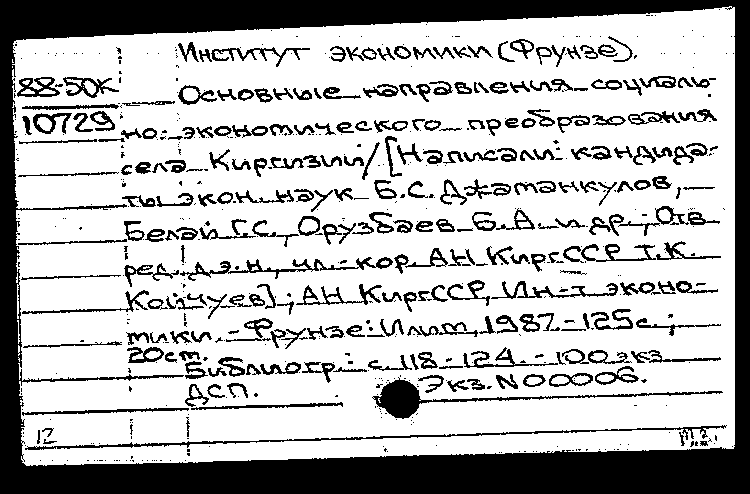 Институт экономики (Фрунзе).
88-50к
Основные направления социаль-
10729
но-экономического преобразования
села Киргизии / [Написали: кандида-
ты экон. наук Б.С. Джаманкулов,
Белай Г.С., Орузбаев Б.А. и др.; Отв.
ред. д.э.н., чл.-кор. АН КиргССР Т.К.
Койчуев]; АН КиргССР, Ин-т эконо-
мики. - Фрунзе: Илим, 1987. - 125с.;
20см.
Библиогр.: с. 118-124. - 100 экз.
ДСП.
Экз. N 00006.
12